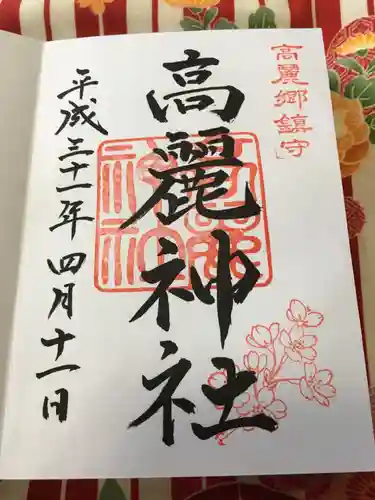 高麗郷鎮守
高麗神社
平成三十一年四月十一日